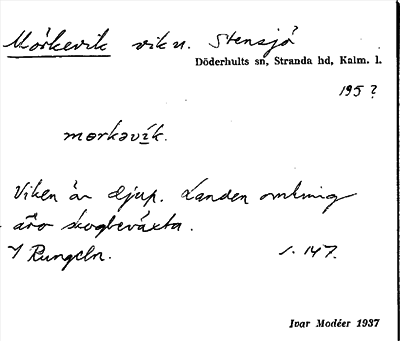 Mörkevik vik n. Stensjö
Döderhults sn, Stranda hd, Kalm. l.
195?
mørkəvik.
Viken är djup. Landen omkring
äro skogbeväxta.
Rungeln. s. 147.
Ivar Modéer 1937